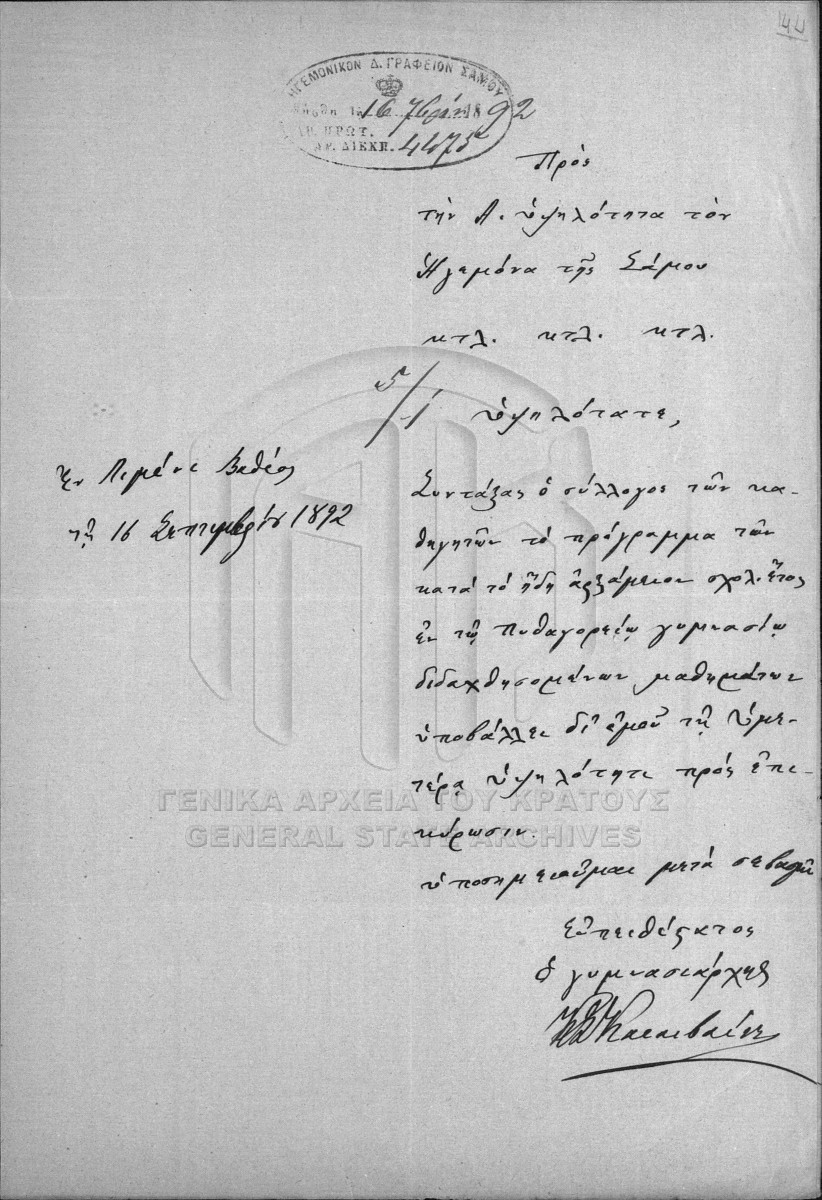 44
ΗΓΕΜΟΝΙΚΟΝ Δ. ΓΡΑΦΕΙΟΝ ΣΑΜΟΥ
16 7βρίου 1892
ΑΡ. ΠΡΩΤ.
ΑΡ. ΔΙΕΚΠ.
Πρὸς
τὴν Α. ὑψηλότητα τὸν
Ἡγεμόνα τῆς Σάμου
κτλ. κτλ. κτλ.
5/1
ὑψηλότατε,
Ἐν Λιμένι Βαθέος
τῇ 16 Σεπτεμβρίου 1892
Συντάξας ὁ σύλλογος τῶν κα-
θηγητῶν τὸ πρόγραμμα τῶν
κατὰ τὸ ἤδη ἀρξάμενον σχολ. ἔτος
ἐν τῷ Πυθαγορείῳ γυμνασίῳ
διδαχθησομένων μαθημάτων
ὑποβάλλει δι' ἐμοῦ τῇ Ὑμε-
τέρᾳ Ὑψηλότητι πρὸς ἐπι-
κύρωσιν.
ὑποσημειοῦμαι μετὰ σεβασμοῦ
Εὐπειθέστατος
ὁ γυμνασιάρχης
ΓΕΝΙΚΑ ΑΡΧΕΙΑ ΤΟΥ ΚΡΑΤΟΥΣ
GENERAL STATE ARCHIVES